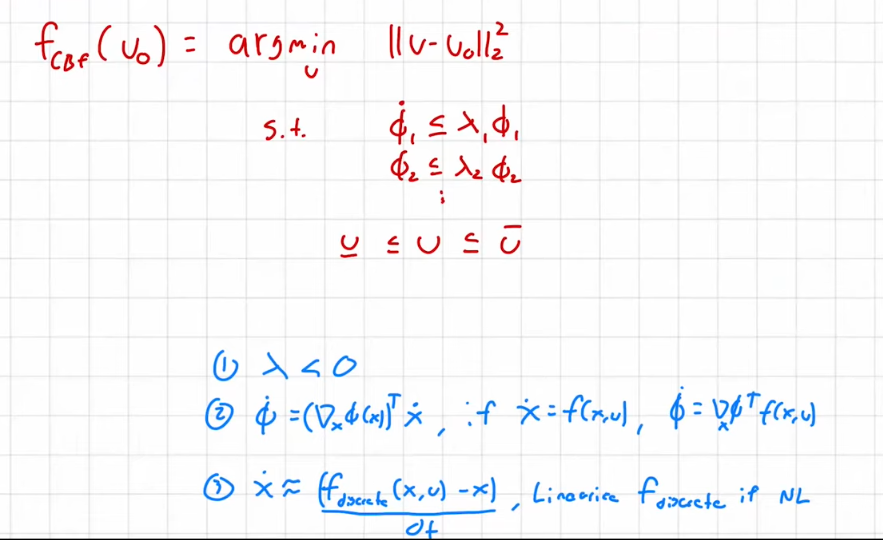 f_CBF(u₀) = argmin_u ||u-u₀||₂²
s.t. ϕ̇₁ ≤ λ₁ϕ₁
ϕ₂ ≤ λ₂ϕ₂
⋮
u̲ ≤ u ≤ u̅
① λ < 0
② ϕ̇ = (∇ₓϕ(x))ᵀ ẋ , if ẋ = f(x,u) , ϕ̇ = ∇ₓϕᵀ f(x,u)
③ ẋ ≈ (f_discrete(x,u) - x)/dt , Linearize f_discrete if NL